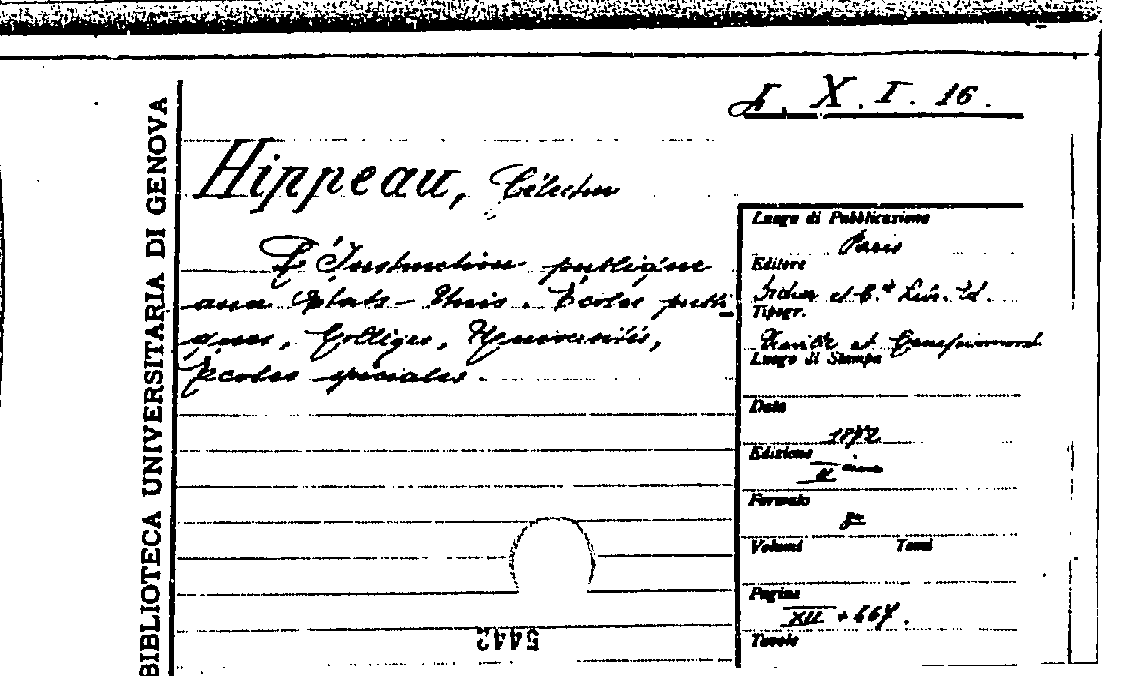 BIBLIOTECA UNIVERSITARIA DI GENOVA
L. X. I. 16.
Hippeau, Célestin
L'Instruction publique
aux Etats-Unis. Écoles publi-
ques, Collèges, Universités,
Écoles spéciales.
Luogo di Pubblicazione
Paris
Editore
Didier et C.ie Lib. Ed.
Tipogr.
et
Luogo di Stampa
Data
1872
Edizione
II
Formato
8º
Volumi Tomi
Pagine
XII + 447.
Tavole
5442